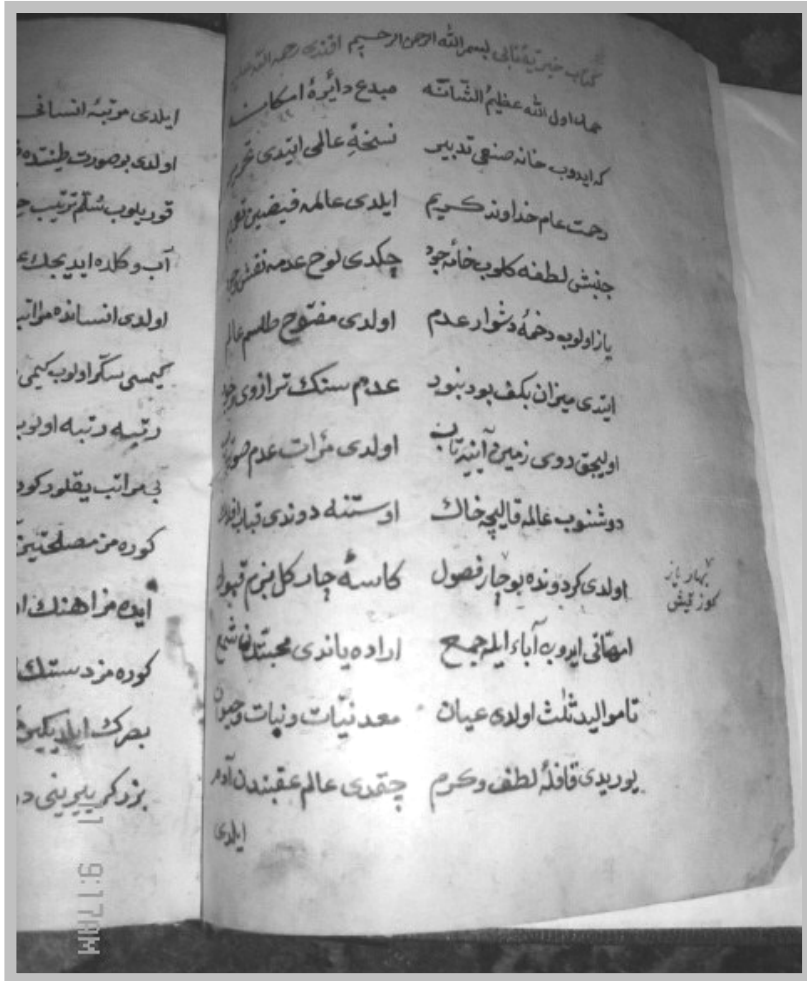 كتاب خيريۀ نابى بسم الله الرحمن الرحيم افندى رحمة الله عليه
حمد اول الله عظيم الشانه مبدع دائرۀ امكانه
كه ايدوب خانه صنعى تدبير نسخۀ عالمى ايتدى تحرير
رحمت عام خداوند كريم ايلدى عالمه فيضين
جنبش لطفه كلوب خامۀ جود چكدى لوح عدمه نقش وجود
باز اولوب دخمۀ دشوار عدم اولدى مفتوح طلسم عالم
ايتدى ميزان بكف بود نبود عدم سنك ترازوى وجود
اوليجق روى زمين آينه تاب اولدى مرآت عدم
دوشنوب عالمه قاليچۀ خاك اوستنه دوندى قباب افلاك
اولدى كردونده بو چار فصول كاسۀ چار كل بزم قبول
بهار ياز
كوز قيش
امهاتى ايدوب آباء ايله جمع اراده ياندى محبتدن شمع
تا مواليد ثلث اولدى عيان معدنيات ونبات وحيوان
يوريدى قافلۀ لطف وكرم چقدى عالم عقبندن آدم
ايلدى
ايلدى مرتبۀ انسانى
اولدى بو صورت طينتده
قوريلوب سلم ترتيب
آب وكلده ايديجك
اولدى انسانده مراتب
كيمسى سكر اولوب كيمى
رتبه رتبه اولوب
بى مراتب يقلور
كوره مز مصلحتين
ايده مز اهنك
كوره مز دستك
بزدكر بيربينى
9:17AM